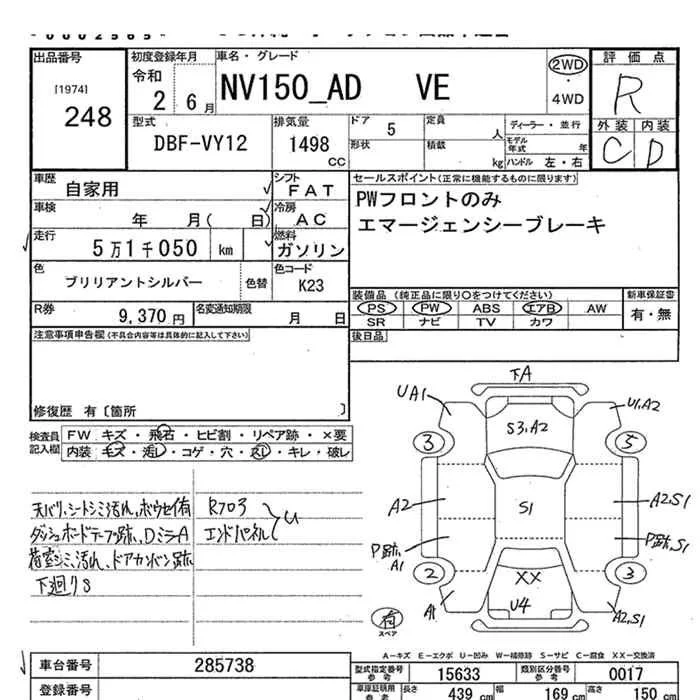 出品番号
[1974]
248
初度登録年月
令和
2 6月
車名・グレード
NV150_AD VE
2WD
・
4WD
評価点
R
外装 内装
C D
型式
DBF-VY12
排気量
1498
CC
ドア 5
形状
定員 人
積載 kg
ディーラー・並行
モデル年式 年
ハンドル 左・右
車歴
自家用
シフト
FAT
車検
年 月( 日)
冷房
AC
走行
5万1千050 km
燃料
ガソリン
色
ブリリアントシルバー
色替
色コード
K23
R券
9,370 円
名変通知期限
月 日
セールスポイント(正常に機能するものに限ります)
PWフロントのみ
エマージェンシーブレーキ
装備品 (純正品に限り○をつけてください)
PS PW ABS エアB AW
SR ナビ TV カワ
新車保証書
有・無
後日品
注意事項申告欄(不具合内容等は具体的に記入して下さい)
修復歴 有〔箇所 〕
検査員
記入欄
FW キズ・飛石・ヒビ割・リペア跡・×要
内装 キズ・汚レ・コゲ・穴・スレ・キレ・破レ
天バリ、シートシミ汚れ、ホウセイ有
ダッシュボードテープ跡、DミラーA
荷室シミ、汚れ、ドアカンバン跡
下廻りS
R703
エンドパネル
U
下A
UA1
U1,A2
S3,A2
3
5
A2
S1
A2,S1
P跡,A1
P跡,S1
2
3
XX
U4
A1
A2,S1
有
スペア
A-キズ E-エクボ U-凹み W-補修跡 S-サビ C-腐食 XX-交換済
車台番号
285738
登録番号
型式指定番号
参考
15633
類別区分番号
参考
0017
車庫証明用
参考
長さ
439 cm
幅
169 cm
高さ
150 cm